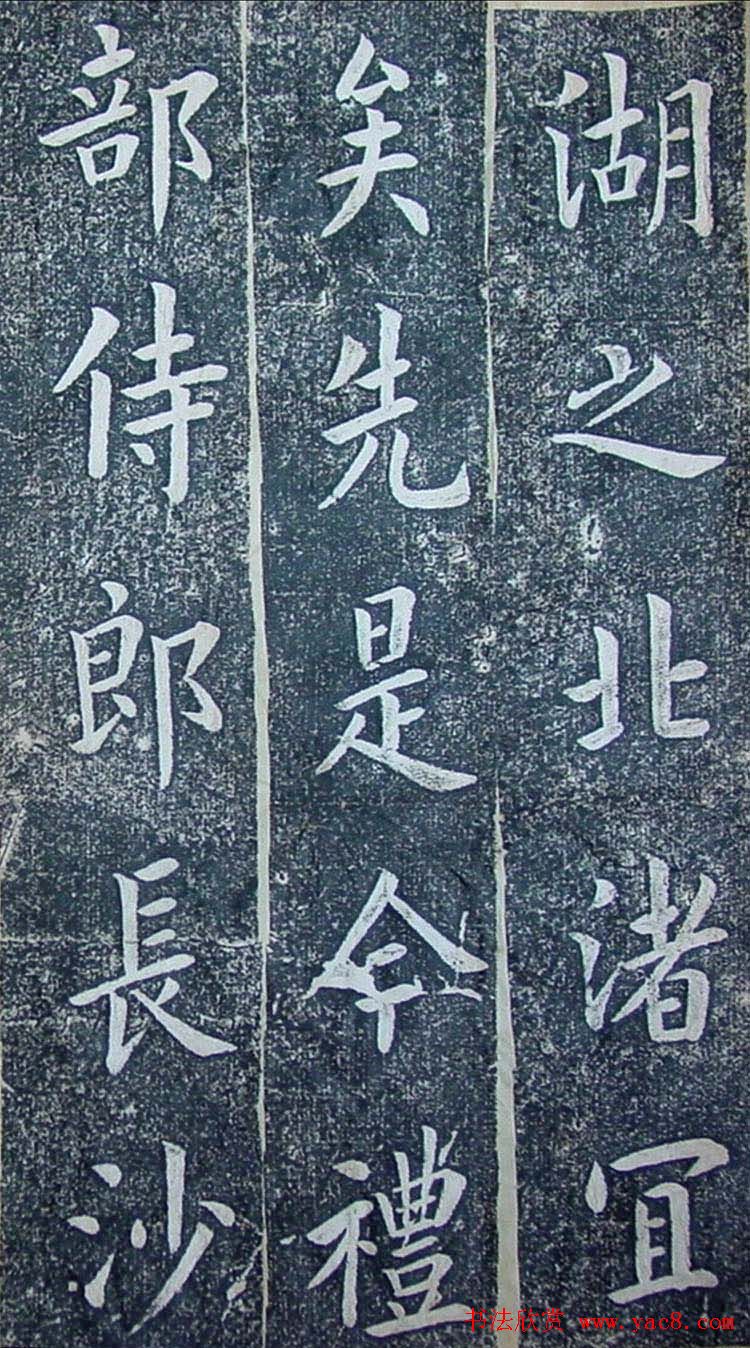 湖之北渚冝
矣先是今禮
部侍郎長沙
书法欣赏 www.yac8.com